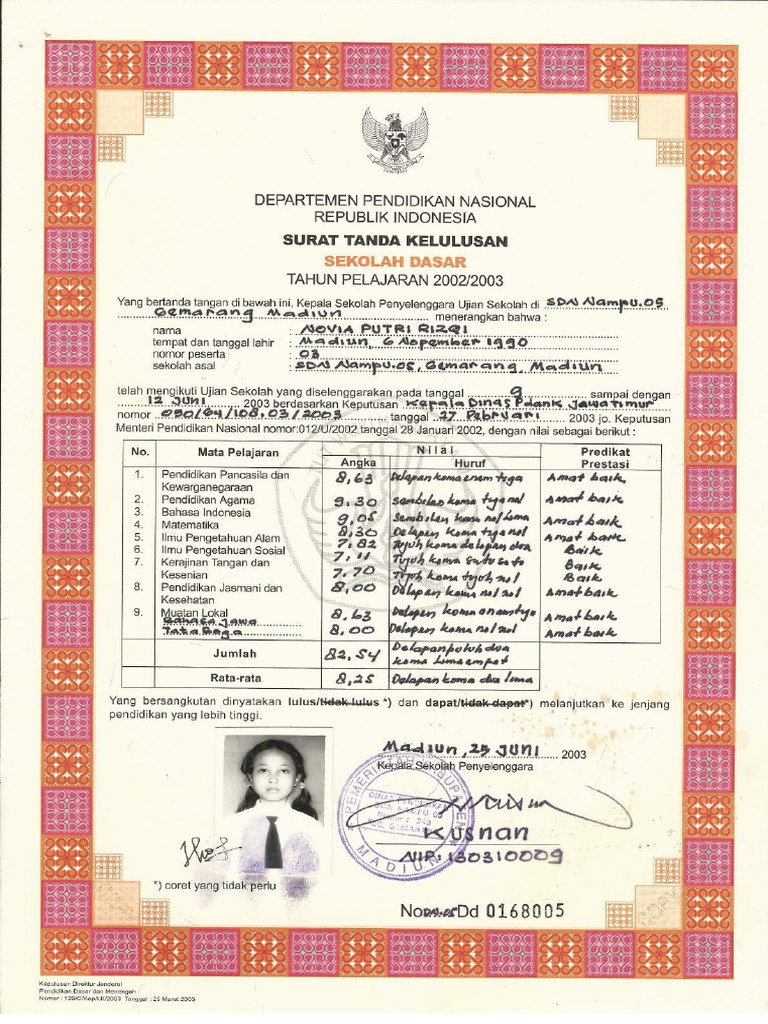 DEPARTEMEN PENDIDIKAN NASIONAL
REPUBLIK INDONESIA
SURAT TANDA KELULUSAN
SEKOLAH DASAR
TAHUN PELAJARAN 2002/2003
Yang bertanda tangan di bawah ini, Kepala Sekolah Penyelenggara Ujian Sekolah di SDN Nampu.05
Gemarang Madiun menerangkan bahwa :
nama : NOVIA PUTRI RIZQI
tempat dan tanggal lahir : Madiun, 6 Nopember 1990
nomor peserta : 03
sekolah asal : SDN Nampu.05, Gemarang, Madiun
telah mengikuti Ujian Sekolah yang diselenggarakan pada tanggal 9 sampai dengan
12 JUNI 2003 berdasarkan Keputusan Kepala Dinas Pdank Jawa timur
nomor 050/64/108.03/2003 tanggal 27 Pebruari 2003 jo. Keputusan
Menteri Pendidikan Nasional nomor:012/U/2002 tanggal 28 Januari 2002, dengan nilai sebagai berikut :
No. Mata Pelajaran Nilai Predikat
Angka Huruf Prestasi
1. Pendidikan Pancasila dan 8,63 Delapan koma enam tiga Amat baik
Kewarganegaraan
2. Pendidikan Agama 9,30 sembilan koma tiga nol Amat baik
3. Bahasa Indonesia 9,05 sembilan koma nol lima Amat baik
4. Matematika 8,30 Delapan koma tiga nol Amat baik
5. Ilmu Pengetahuan Alam 7,82 Tujuh koma delapan dua Baik
6. Ilmu Pengetahuan Sosial 7,11 Tujuh koma satu satu Baik
7. Kerajinan Tangan dan 7,70 Tujuh koma tujuh nol Baik
Kesenian
8. Pendidikan Jasmani dan 8,00 Delapan koma nol nol Amat baik
Kesehatan
9. Muatan Lokal
Bahasa Jawa 8,63 Delapan koma enam tiga Amat baik
Tata Boga 8,00 Delapan koma nol nol Amat baik
Jumlah 82,54 Delapan puluh dua
koma lima empat
Rata-rata 8,25 Delapan koma dua lima
Yang bersangkutan dinyatakan lulus/tidak lulus *) dan dapat/tidak dapat*) melanjutkan ke jenjang
pendidikan yang lebih tinggi.
Madiun, 25 JUNI 2003
Kepala Sekolah Penyelenggara
PEMERINTAH KABUPATEN
DINAS PENDIDIKAN
SDN NAMPU 05
KEC. GEMARANG
MADIUN
Kusnan
NIP: 130310009
*) coret yang tidak perlu
No Dd 0168005
Keputusan Direktur Jenderal
Pendidikan Dasar dan Menengah
Nomor : 129/C/Kep/LK/2003 Tanggal : 25 Maret 2003